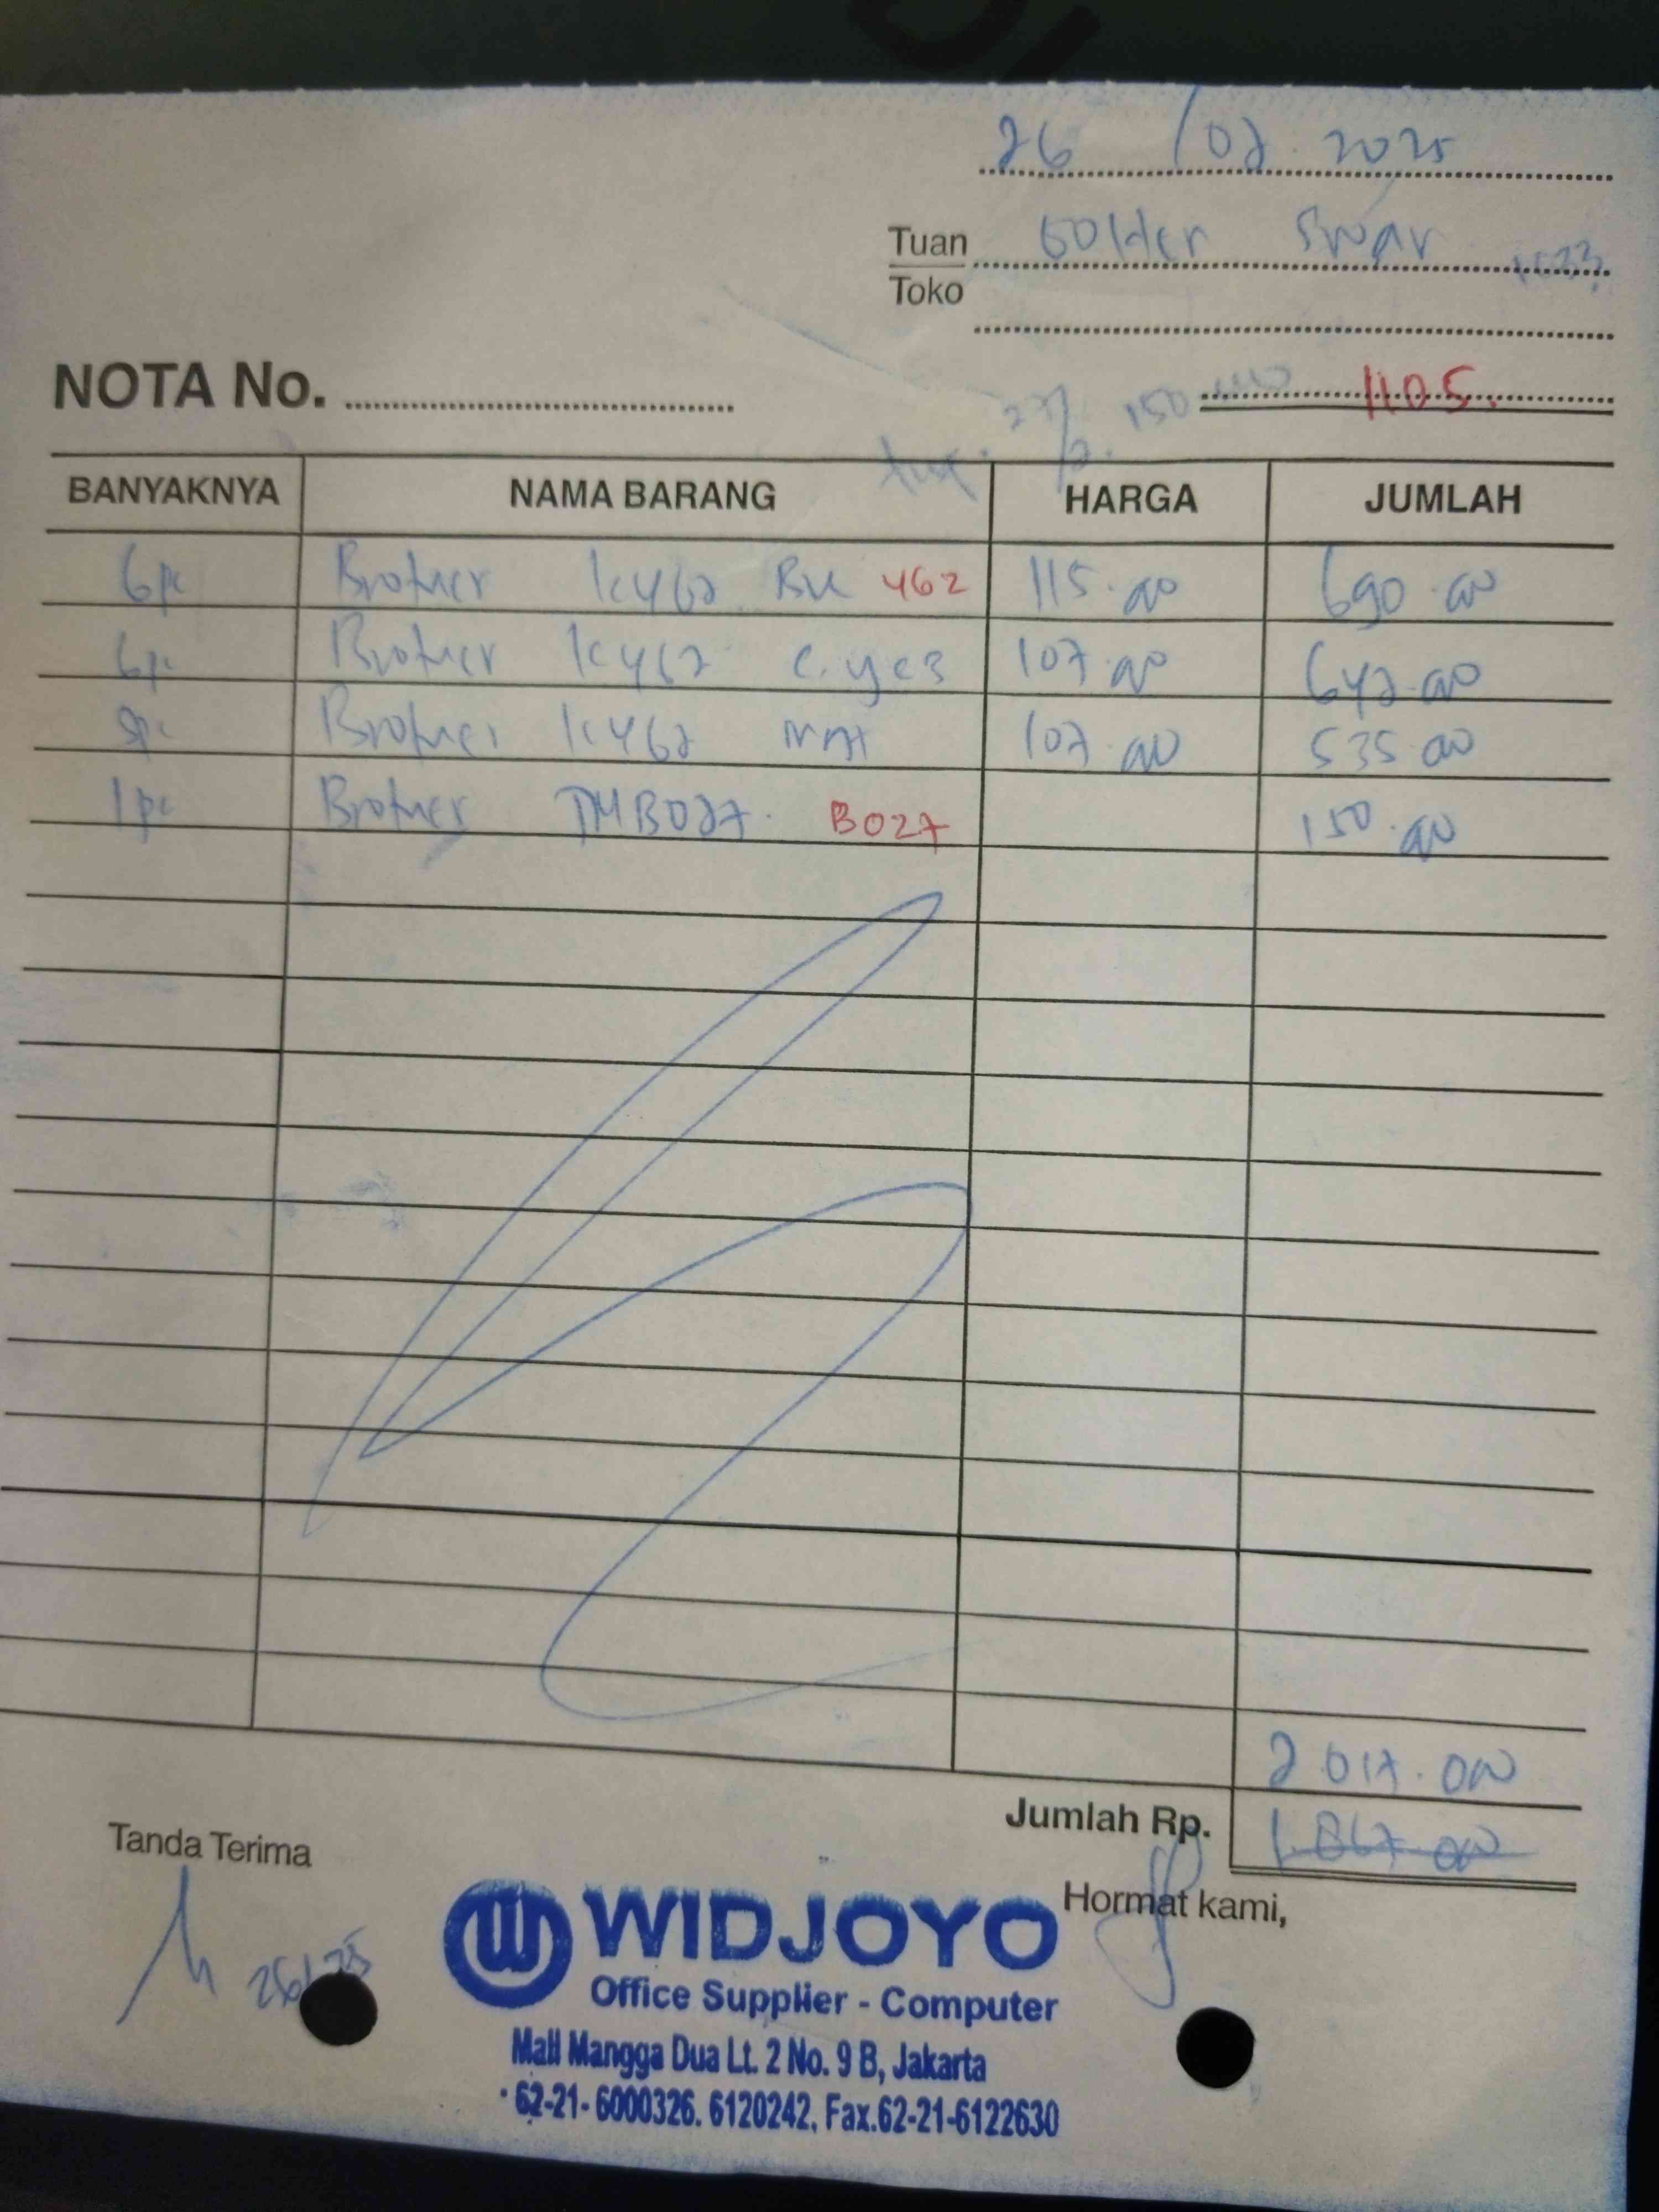 26 /02. 2025
Tuan Golden Sinar 1033
Toko
NOTA No. 1105.
27/2. 150
BANYAKNYA NAMA BARANG HARGA JUMLAH
6pc Brother lc462 BK 462 115.000 690.000
6pc Brother lc462 c.yes 107.000 642.000
5pc Brother lc462 107.000 535.000
1pc Brother TMB027. B027 150.000
2.017.000
Jumlah Rp. 1.867.000
Tanda Terima
Hormat kami,
WIDJOYO
Office Supplier - Computer
Mall Mangga Dua Lt. 2 No. 9 B, Jakarta
62-21- 6000326. 6120242, Fax.62-21-6122630